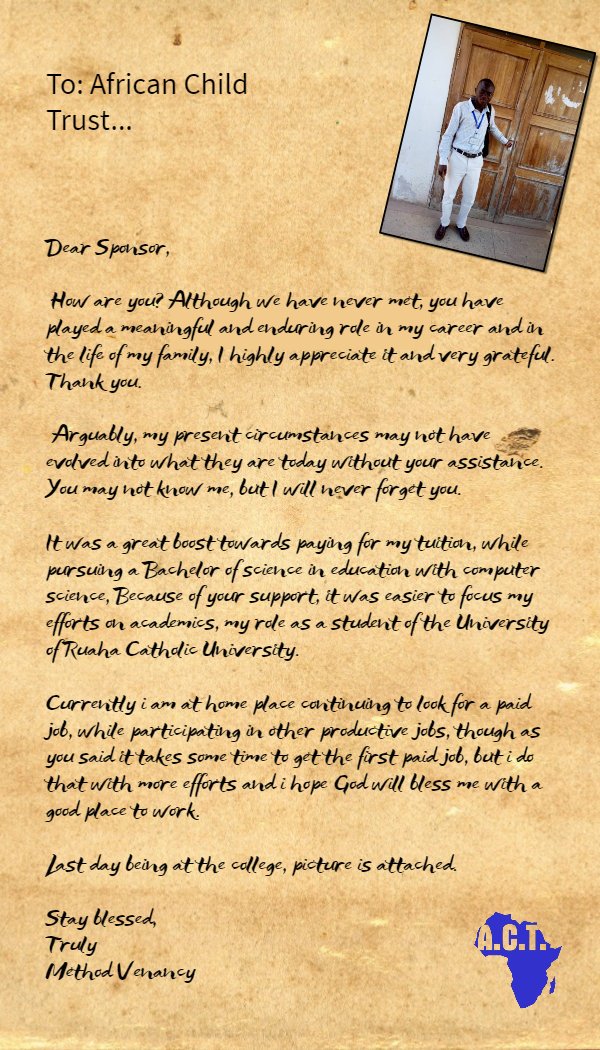 To: African Child
Trust...
Dear Sponsor,
How are you? Although we have never met, you have
played a meaningful and enduring role in my career and in
the life of my family, I highly appreciate it and very grateful.
Thank you.
Arguably, my present circumstances may not have
evolved into what they are today without your assistance.
You may not know me, but I will never forget you.
It was a great boost towards paying for my tuition, while
pursuing a Bachelor of science in education with computer
science, Because of your support, it was easier to focus my
efforts on academics, my role as a student of the University
of Ruaha Catholic University.
Currently i am at home place continuing to look for a paid
job, while participating in other productive jobs, though as
you said it takes some time to get the first paid job, but i do
that with more efforts and i hope God will bless me with a
good place to work.
Last day being at the college, picture is attached.
Stay blessed,
Truly
Method Venancy
A.C.T.